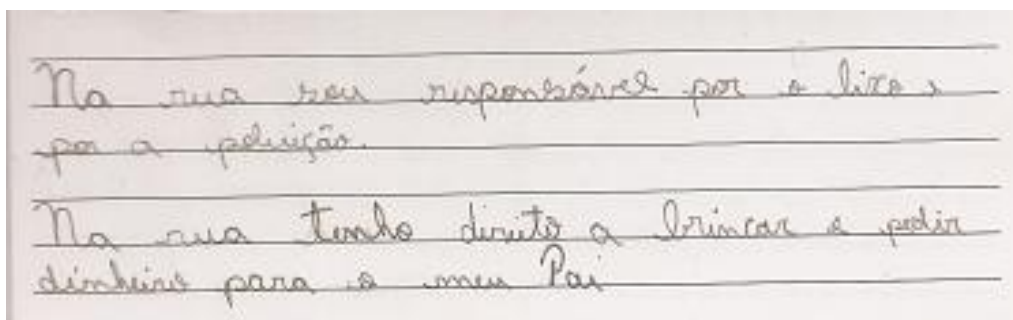 Na rua sou responsável por o lixo e
por a poluição.
Na rua tenho direito a brincar e pedir
dinheiro para o meu Pai